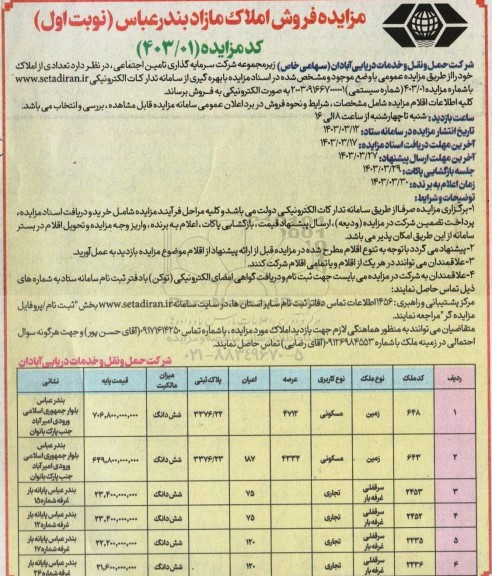 مزایده فروش املاک مازاد بندرعباس (نوبت اول)
کد مزایده (۴۰۳/۰۱)
شرکت حمل و نقل و خدمات دریایی آبادان (سهامی خاص) زیرمجموعه شرکت سرمایه گذاری تامین اجتماعی، در نظر دارد تعدادی از املاک
خود را از طریق مزایده عمومی با وضع موجود و مشخص شده در اسناد مزایده با بهره گیری از سامانه تدارکات الکترونیکی www.setadiran.ir
با شماره مزایده ۴۰۳/۰۱ (شماره سیستمی) به صورت الکترونیکی به فروش برساند.
کلیه اطلاعات اقلام مزایده شامل مشخصات، شرایط و نحوه فروش در برد اعلان عمومی سامانه مزایده قابل مشاهده، بررسی و انتخاب می باشد.
ساعت بازدید: شنبه تا چهارشنبه از ساعت ۸ الی ۱۶
تاریخ انتشار مزایده در سامانه ستاد: ۱۴۰۳/۰۳/۱۲
آخرین مهلت دریافت اسناد مزایده: ۱۴۰۳/۰۳/۱۷
آخرین مهلت ارسال پیشنهاد: ۱۴۰۳/۰۳/۲۷
جلسه بازگشایی پاکات: ۱۴۰۳/۰۳/۲۹
زمان اعلام به برنده: ۱۴۰۳/۰۳/۳۰
توضیحات و شرایط:
۱-برگزاری مزایده صرفا از طریق سامانه تدارکات الکترونیکی دولت می باشد و کلیه مراحل فرآیند مزایده شامل خرید و دریافت اسناد مزایده،
پرداخت تضمین شرکت در مزایده (ودیعه)، ارسال پیشنهاد قیمت، بازگشایی پاکات، اعلام به برنده، واریز وجه مزایده و تحویل اقلام در بستر
سامانه از این طریق امکان پذیر می باشد.
۲-پیشنهاد می گردد با توجه به تنوع اقلام مطرح شده در مزایده قبل از ارائه پیشنهاد از اقلام موضوع مزایده بازدید به عمل آورید.
۳-علاقمندان می توانند در هر یک از اقلام و یا تمامی اقلام شرکت کنند.
۴-علاقمندان به شرکت در مزایده می بایست جهت ثبت نام و دریافت گواهی امضای الکترونیکی (توکن) با دفتر ثبت نام سامانه ستاد به شماره های
ذیل تماس حاصل نمایند:
مرکز پشتیبانی و راهبری: ۱۴۵۶ اطلاعات تماس دفاتر ثبت نام سایر استان ها، در سایت سامانه www.setadiran.ir بخش "ثبت نام/پروفایل
مزایده گر" مراجعه نمایند.
متقاضیان می توانند به منظور هماهنگی لازم جهت بازدید املاک مورد مزایده، با شماره تماس ۰۹۱۷۷۶۱۴۲۵۰ (آقای حسن پور) و جهت هرگونه سوال
احتمالی در زمینه ملک با شماره ۰۹۱۲۶۹۸۴۵۵۳ (آقای رضایی) تماس حاصل نمایند.
۰۲۱-۸۸۳۴۹۶۷۰-۵
شرکت حمل و نقل و خدمات دریایی آبادان
ردیف کد ملک نوع ملک نوع کاربری عرصه اعیان پلاک ثبتی میزان مالکیت قیمت پایه نشانی
۱ ۶۴۸ زمین مسکونی ۴۷۱۲ ۳۳۷۶/۲۲ شش دانگ ۷۰۶,۸۰۰,۰۰۰,۰۰۰ بندرعباس بلوار جمهوری اسلامی ورودی امیرآباد جنب پارک بانوان
۲ ۶۴۳ زمین مسکونی ۴۳۳۲ ۱۸۷ ۳۳۷۶/۲۳ شش دانگ ۶۴۹,۸۰۰,۰۰۰,۰۰۰ بندرعباس بلوار جمهوری اسلامی ورودی امیرآباد جنب پارک بانوان
۳ ۲۴۵۳ سرقفلی غرفه بار تجاری ۷۵ شش دانگ ۲۳,۴۰۰,۰۰۰,۰۰۰ بندرعباس پایانه بار غرفه شماره ۱۵
۴ ۲۴۵۲ سرقفلی غرفه بار تجاری ۷۵ شش دانگ ۲۳,۴۰۰,۰۰۰,۰۰۰ بندرعباس پایانه بار غرفه شماره ۱۲
۵ ۲۲۳۵ سرقفلی غرفه بار تجاری ۱۲۰ شش دانگ ۲۲,۲۰۰,۰۰۰,۰۰۰ بندرعباس پایانه بار غرفه شماره ۱۷
۶ ۲۲۳۶ سرقفلی غرفه بار تجاری ۱۲۰ شش دانگ ۲۱,۶۰۰,۰۰۰,۰۰۰ بندرعباس پایانه بار غرفه شماره ۲۴